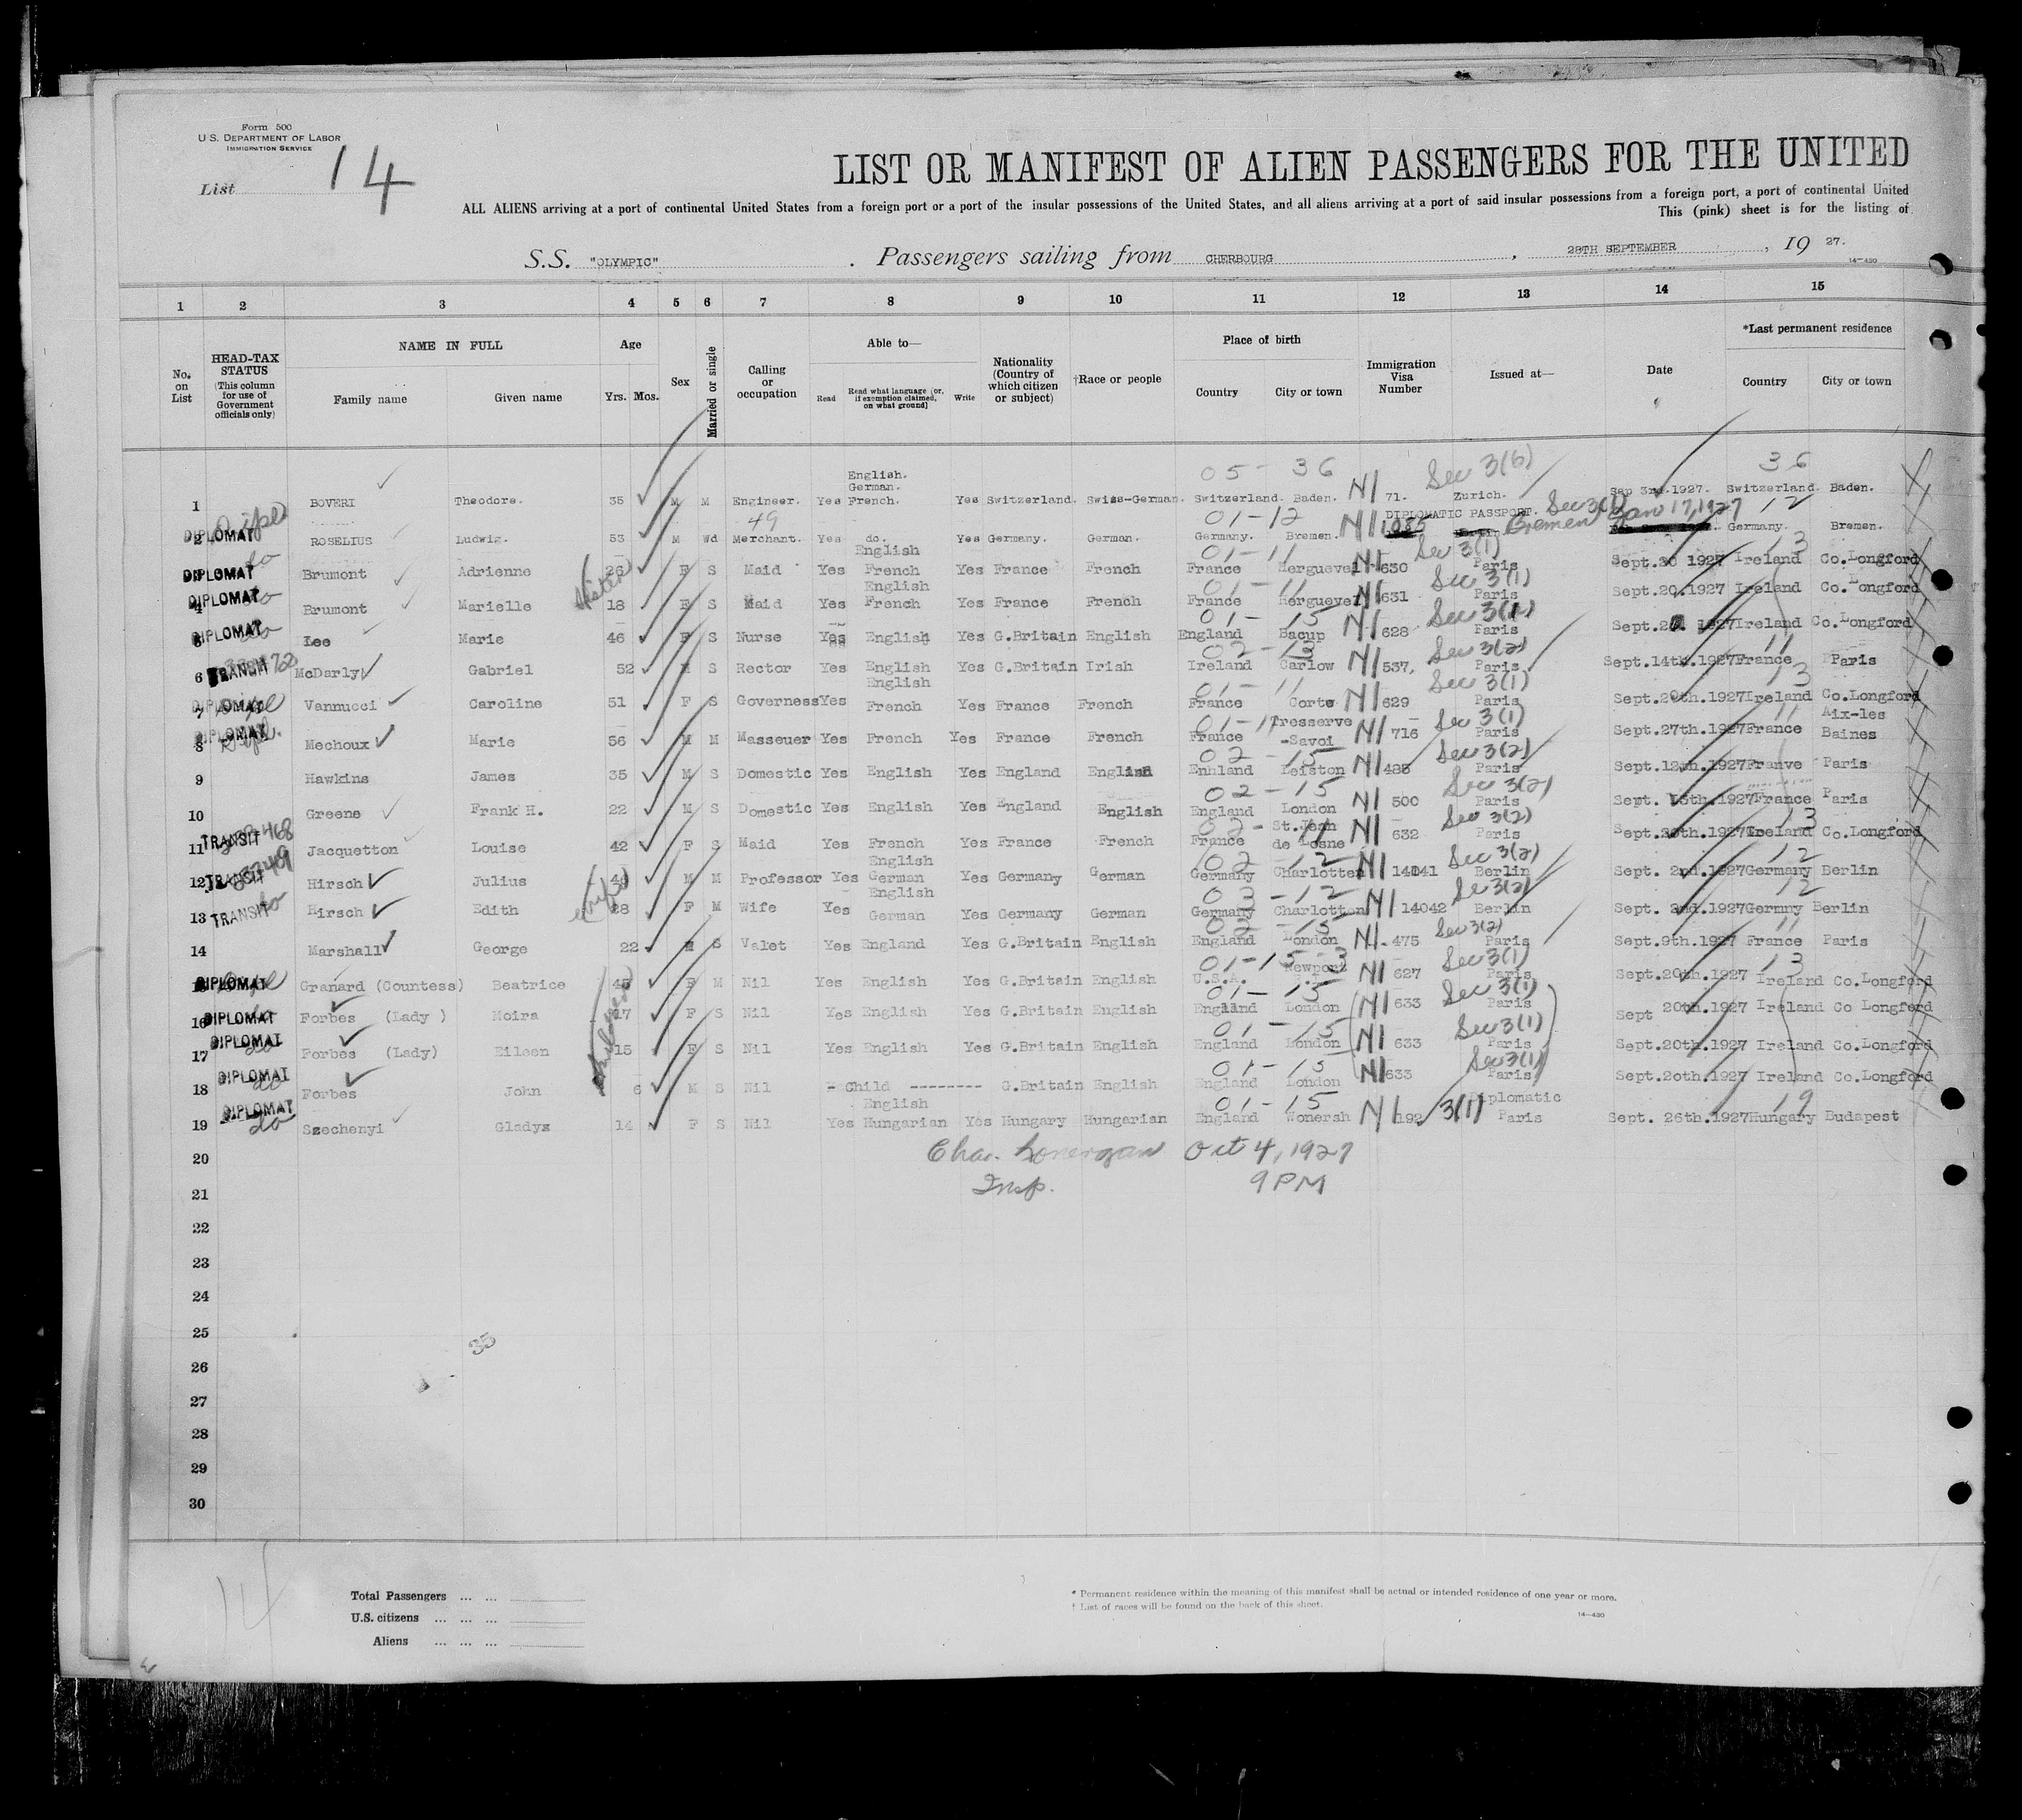 Form 500
U.S. DEPARTMENT OF LABOR
IMMIGRATION SERVICE
List 14
LIST OR MANIFEST OF ALIEN PASSENGERS FOR THE UNITED
ALL ALIENS arriving at a port of continental United States from a foreign port or a port of the insular possessions of the United States, and all aliens arriving at a port of said insular possessions from a foreign port, a port of continental United
This (pink) sheet is for the listing of
S.S. "OLYMPIC" . Passengers sailing from CHERBOURG , 28TH SEPTEMBER , 19 27.
14-430
1 2 3 4 5 6 7 8 9 10 11 12 13 14 15
No. on List
HEAD-TAX STATUS (This column for use of Government officials only)
NAME IN FULL Family name Given name
Age Yrs. Mos.
Sex
Married or single
Calling or occupation
Able to— Read Read what language [or, if exemption claimed, on what ground] Write
Nationality (Country of which citizen or subject)
†Race or people
Place of birth Country City or town
Immigration Visa Number
Issued at—
Date
*Last permanent residence Country City or town
05-36 Sec 3(6) 36
1 BOVERI Theodore. 35 M M Engineer. Yes English. German. French. Yes Switzerland. Swiss-German. Switzerland. Baden. NI 71. Zurich. Sep 3rd.1927. Switzerland. Baden.
49 01-12 DIPLOMATIC PASSPORT. Sec 3(1) Bremen Jan 17, 1927 12
2 DIPLOMAT ROSELIUS Ludwig. 53 M Wd Merchant. Yes do. Yes Germany. German. Germany. Bremen. NI 1085 Germany. Bremen.
01-11 Sec 3(1) 3
DIPLOMAT do Brumont Adrienne 26 F S Maid Yes English French Yes France French France Herguevel NI 630 Paris Sept.20 1927 Ireland Co.Longford
sisters
01-11 Sec 3(1)
4 DIPLOMAT do Brumont Marielle 18 F S Maid Yes English French Yes France French France Herguevel NI 631 Paris Sept.20.1927 Ireland Co.Longford
01-15 Sec 3(1)
DIPLOMAT do Lee Marie 46 F S Nurse Yes English Yes G.Britain English England Bacup NI 628 Paris 1927 Ireland Co.Longford
02-13 Sec 3(2) 11
6 TRANSIT McDarly Gabriel 52 M S Rector Yes English Yes G.Britain Irish Ireland Carlow NI 537, Paris. Sept.14th.1927 France Paris
01-11 Sec 3(1) 3
7 DIPLOMAT Dipl Vannucci Caroline 51 F S Governess Yes English French Yes France French France Corte NI 629 Paris Sept.20th.1927 Ireland Co.Longford
01-11 Sec 3(1) 11
8 DIPLOMAT Dipl. Mechoux Marie 56 M M Masseuer Yes French Yes France French France Tresserve -Savoi NI 716 Paris Sept.27th.1927 France Aix-les Baines
02-15 Sec 3(2)
9 Hawkins James 35 M S Domestic Yes English Yes England English Enhland Leiston NI 485 Paris Sept.12th.1927 Franve Paris
02-15 Sec 3(2)
10 Greene Frank H. 22 M S Domestic Yes English Yes England English England London NI 500 Paris Sept. 15th.1927 France Paris
02-11 Sec 3(2) 3
11 TRANSIT Jacquetton Louise 42 F S Maid Yes French Yes France French France St.Jean de Losne NI 632 Paris Sept.20th.1927 Ireland Co.Longford
02-12 Sec 3(2) 12
12 TRANSIT Hirsch Julius M M Professor Yes English German Yes Germany German Germany Charlotten NI 14041 Berlin Sept. 2nd.1927 Germany Berlin
03-12 Sec 3(2) 12
13 TRANSIT do Hirsch Edith 28 F M Wife Yes English German Yes Germany German Germany Charlotten NI 14042 Berlin Sept. 2nd.1927 Germny Berlin
02-15 Sec 3(2) 11
14 Marshall George 22 M S Valet Yes England Yes G.Britain English England London NI 475 Paris Sept.9th.1927 France Paris
01-15-3 Sec 3(1) 3
DIPLOMAT Dipl Granard (Countess) Beatrice F M Nil Yes English Yes G.Britain English U.S.A. Newport NI 627 Paris Sept.20th.1927 Ireland Co.Longford
children
01-15 Sec 3(1)
16 DIPLOMAT do Forbes (Lady ) Moira 17 F S Nil Yes English Yes G.Britain English England London NI 633 Paris Sept 20th.1927 Ireland Co Longford
01-15 Sec 3(1)
17 DIPLOMAT do Forbes (Lady) Eileen 15 F S Nil Yes English Yes G.Britain English England London NI 633 Paris Sept.20th.1927 Ireland Co.Longford
01-15 Sec 3(1)
18 DIPLOMAT do Forbes John 6 M S Nil - Child -------- G.Britain English England London NI 633 Paris Sept.20th.1927 Ireland Co.Longford
01-15 3(1) 19
19 DIPLOMAT do Szechenyi Gladys 14 F S Nil Yes English Hungarian Yes Hungary Hungarian England Wonersh NI 192 Diplomatic Paris Sept. 26th.1927 Hungary Budapest
20 Chas. Lonergan Oct 4, 1927
21 Insp. 9 PM
22
23
24
25
26
27
28
29
30
14
Total Passengers ... ...
U.S. citizens ... ... ...
Aliens ... ... ...
* Permanent residence within the meaning of this manifest shall be actual or intended residence of one year or more.
† List of races will be found on the back of this sheet.
14-430